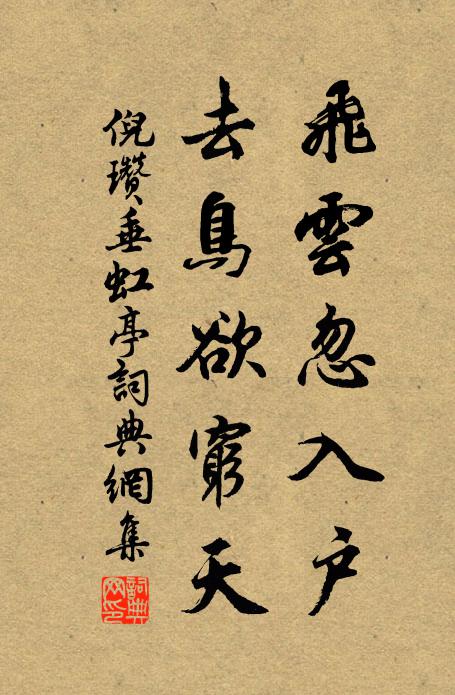 飛雲忽入户
去鳥欲窮天
倪瓚垂虹亭詞典網集
詞典网印